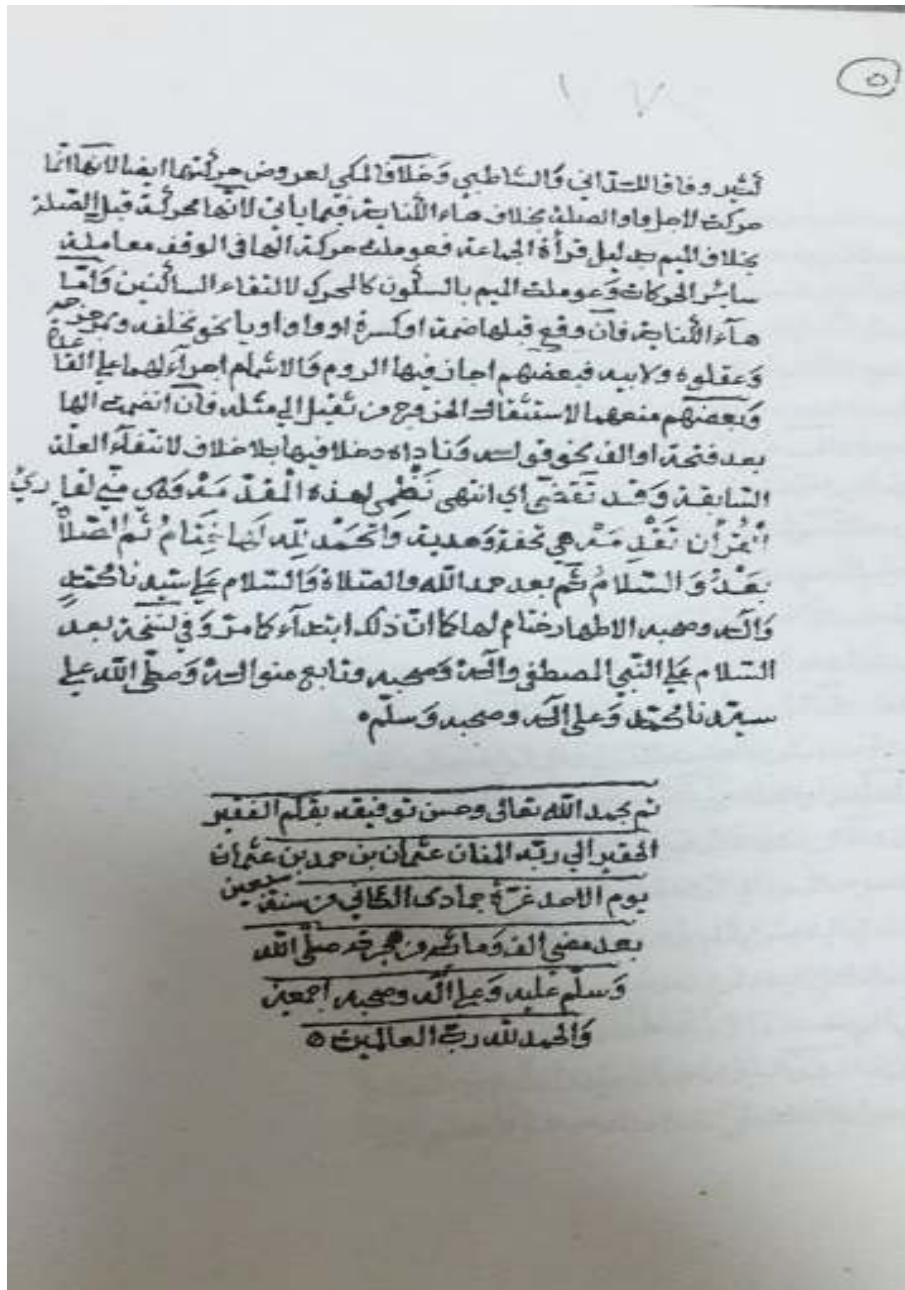 ٥
كثير وفاقا للداني والشاطبي وخلافا لمكي لعروض حركتها ايضا لانها انما
حركت لاجل واو الصلة بخلاف هاء الكناية فيما ياتي لانها محركة قبل الصلة
بخلاف الميم بدليل قرأة الجماعة فعوملت حركة الها في الوقف معاملة
سائر الحركات وعوملت الميم بالسكون كالمحرك لالتقاء الساكنين وامّا
هآء الكناية فان وقع قبلها ضمة او كسرة او واو او يا نحو نخلفه وبمزحزحه
وعقلوه ولابيه فبعضهم اجاز فيها الروم والاشمام اجرآء لهما على القاعدة
وبعضهم منعهما لاستثقال الخروج من ثقيل الى مثله فان انضمت الها
بعد فتحة او الف نحو قوله وناداه دخلا فيها بلا خلاف لانتفآء العلة
السابقة وقد تقضّى اي انتهى نَظْمِي لهذه المقدّمَهْ وَهي منّي لقاريُ
القرأن تقدمَهْ هي تحفة وهدية وَالحَمْد للّه لَها خِتَامُ ثم الصّلاةُ
بَعْدُ وَالسّلامُ ثم بعد حمد الله والصلاة والسلام على سيدنا محمّدٍ
وَآله وصحبه الاطهار ختام لها كما انّ ذلك ابتدآء كما مرّ وَفي نسخة بعد
السّلام على النّبي المصطفى وآلهْ وَصحبه وتابع منوالهْ وَصلّى الله على
سيدنا محمّد وَعلى آله وصحبه وَسلّم ٥
تم بحمد الله تعالى وحسن توفيقه بقلم الفقير
الحقير الى ربّه المنان عثمان بن حمد بن عثمان
يوم الاحد غرّة جمادى الثاني من سنة
بعد مضي الف ومائه من هجرته صلّى الله
وَسلّم عليه وَعلى آله وصحبه اجمعين
وَالحمد للّه ربّ العالمين ٥